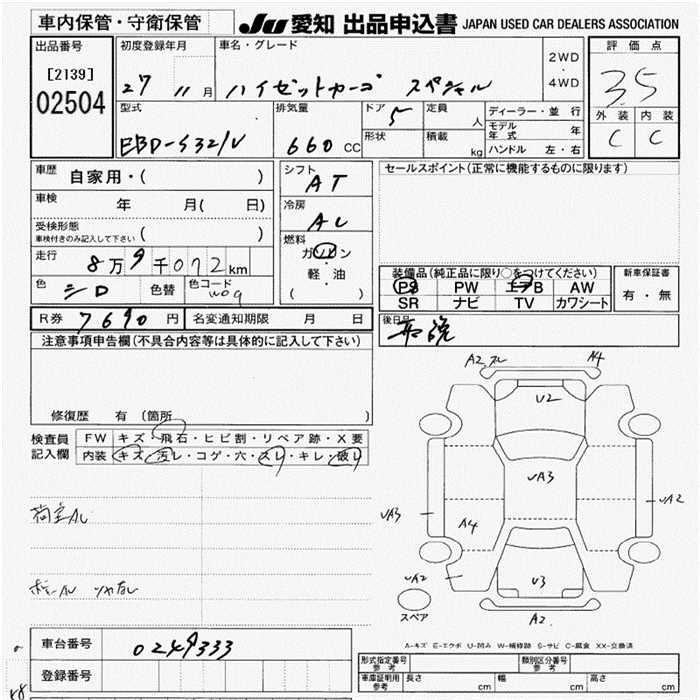 車内保管・守衛保管
JU 愛知 出品申込書 JAPAN USED CAR DEALERS ASSOCIATION
出品番号
[2139]
02504
初度登録年月
27 11月
車名・グレード
ハイゼットカーゴ スペシャル
2WD
・
4WD
評価点
3.5
外装 内装
C C
型式
EBD-S321V
排気量
660 CC
ドア 5
形状
定員 人
積載 kg
ディーラー・並行
モデル年式 年
ハンドル 左・右
車歴 自家用・( )
車検 年 月( 日)
受検形態
車検付きのみ記入して下さい ( )
走行 8万9千072km
色 シロ 色替 色コード W09
シフト
AT
冷房
AC
燃料
ガソリン
・
軽・油
( )
R券 7690円 名変通知期限 月 日
セールスポイント(正常に機能するものに限ります)
装備品(純正品に限り○をつけてください)
PS PW エアB AW
SR ナビ TV カワシート
新車保証書
有・無
後日品
取説
注意事項申告欄(不具合内容等は具体的に記入して下さい)
修復歴 有(箇所 )
検査員記入欄
FW キズ・飛石・ヒビ割・リペア跡・X要
内装 キズ・汚レ・コゲ・穴・スレ・キレ・破レ
荷室AU
A2 A4
U2
UA3
UA3
UA2
A4
UA2
U3
A2
スペア
A-キズ E-エクボ U-凹み W-補修跡 S-サビ C-腐食 XX-交換済
車台番号 0249333
登録番号
型式指定番号
参考
類別区分番号
参考
車庫証明用
参考
長さ cm 幅 cm 高さ cm